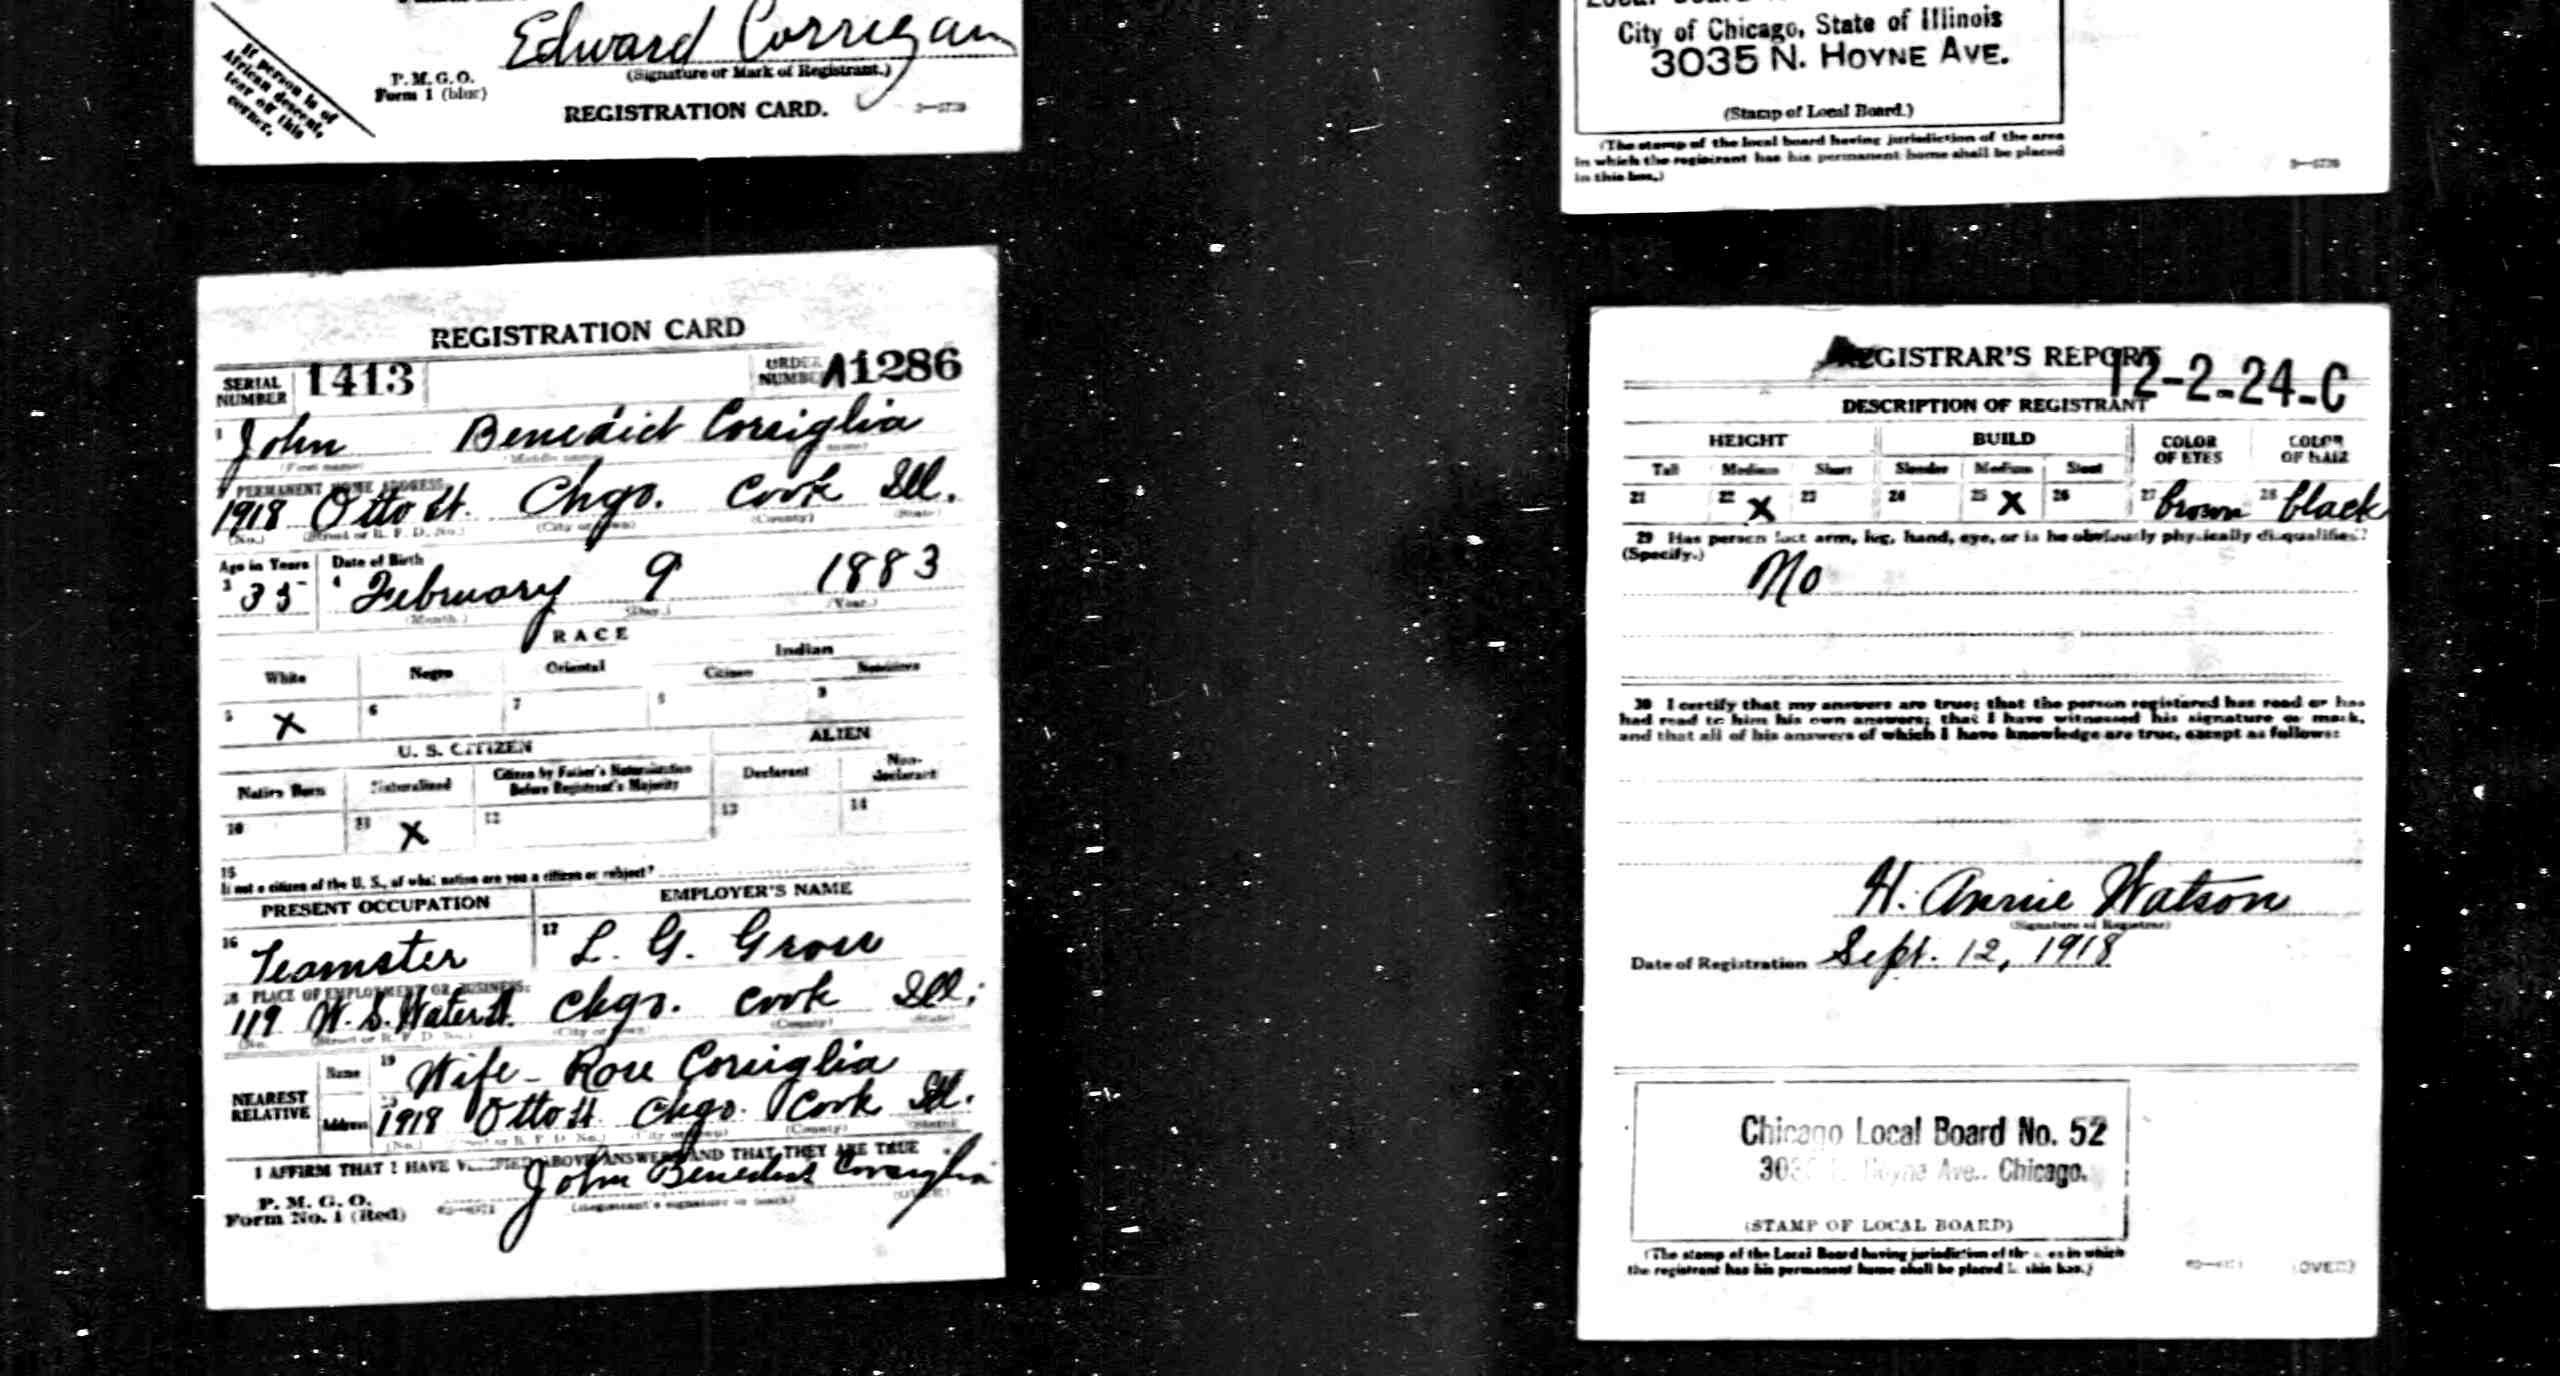 Edward Corrigan
(Signature or Mark of Registrant.)
If person is of
African descent,
tear off this
corner.
P. M. G. O.
Form 1 (blue)
REGISTRATION CARD.
City of Chicago, State of Illinois
3035 N. HOYNE AVE.
(Stamp of Local Board.)
(The stamp of the local board having jurisdiction of the area
in which the registrant has his permanent home shall be placed
in this box.)
REGISTRATION CARD
SERIAL NUMBER 1413 ORDER NUMBER A1286
1 John Benedict Corsiglia
(First name) (Middle name) name)
2 PERMANENT HOME ADDRESS:
1918 Otto St. Chgo. Cook Ill.
(No.) (Street or R. F. D. No.) (City or town) (County) (State)
Age in Years Date of Birth
3 35 4 February 9 1883
(Month.) (Day.) (Year.)
RACE
White Negro Oriental Indian
Citizen Noncitizen
5 X 6 7 8 9
U. S. CITIZEN ALIEN
Native Born Naturalized Citizen by Father's Naturalization Before Registrant's Majority Declarant Non-declarant
10 11 X 12 13 14
15
If not a citizen of the U. S., of what nation are you a citizen or subject?
PRESENT OCCUPATION EMPLOYER'S NAME
16 Teamster 17 L. G. Gross
18 PLACE OF EMPLOYMENT OR BUSINESS:
119 W. S. Water St. Chgo. Cook Ill.
(No. (Street or R. F. D. No.) (City or town) (County) (State)
NEAREST RELATIVE Name 19 Wife - Rose Corsiglia
Address 20 1918 Otto St. Chgo. Cook Ill.
(No.) (Street or R. F. D. No.) (City or town) (County) (State)
I AFFIRM THAT I HAVE VERIFIED ABOVE ANSWERS AND THAT THEY ARE TRUE
P. M. G. O.
Form No. 1 (Red)
John Benedict Corsiglia
(Registrant's signature or mark) (OVER)
REGISTRAR'S REPORT
12-2-24-C
DESCRIPTION OF REGISTRANT
HEIGHT BUILD COLOR OF EYES COLOR OF HAIR
Tall Medium Short Slender Medium Stout
21 22 X 23 24 25 X 26 27 brown 28 black
29 Has person lost arm, leg, hand, eye, or is he obviously physically disqualified?
(Specify.)
No
30 I certify that my answers are true; that the person registered has read or has
had read to him his own answers; that I have witnessed his signature or mark,
and that all of his answers of which I have knowledge are true, except as follows:
H. Annie Watson
(Signature of Registrar)
Date of Registration Sept. 12, 1918
Chicago Local Board No. 52
Hoyne Ave., Chicago.
(STAMP OF LOCAL BOARD)
(The stamp of the Local Board having jurisdiction of the area in which
the registrant has his permanent home shall be placed in this box.)
(OVER)